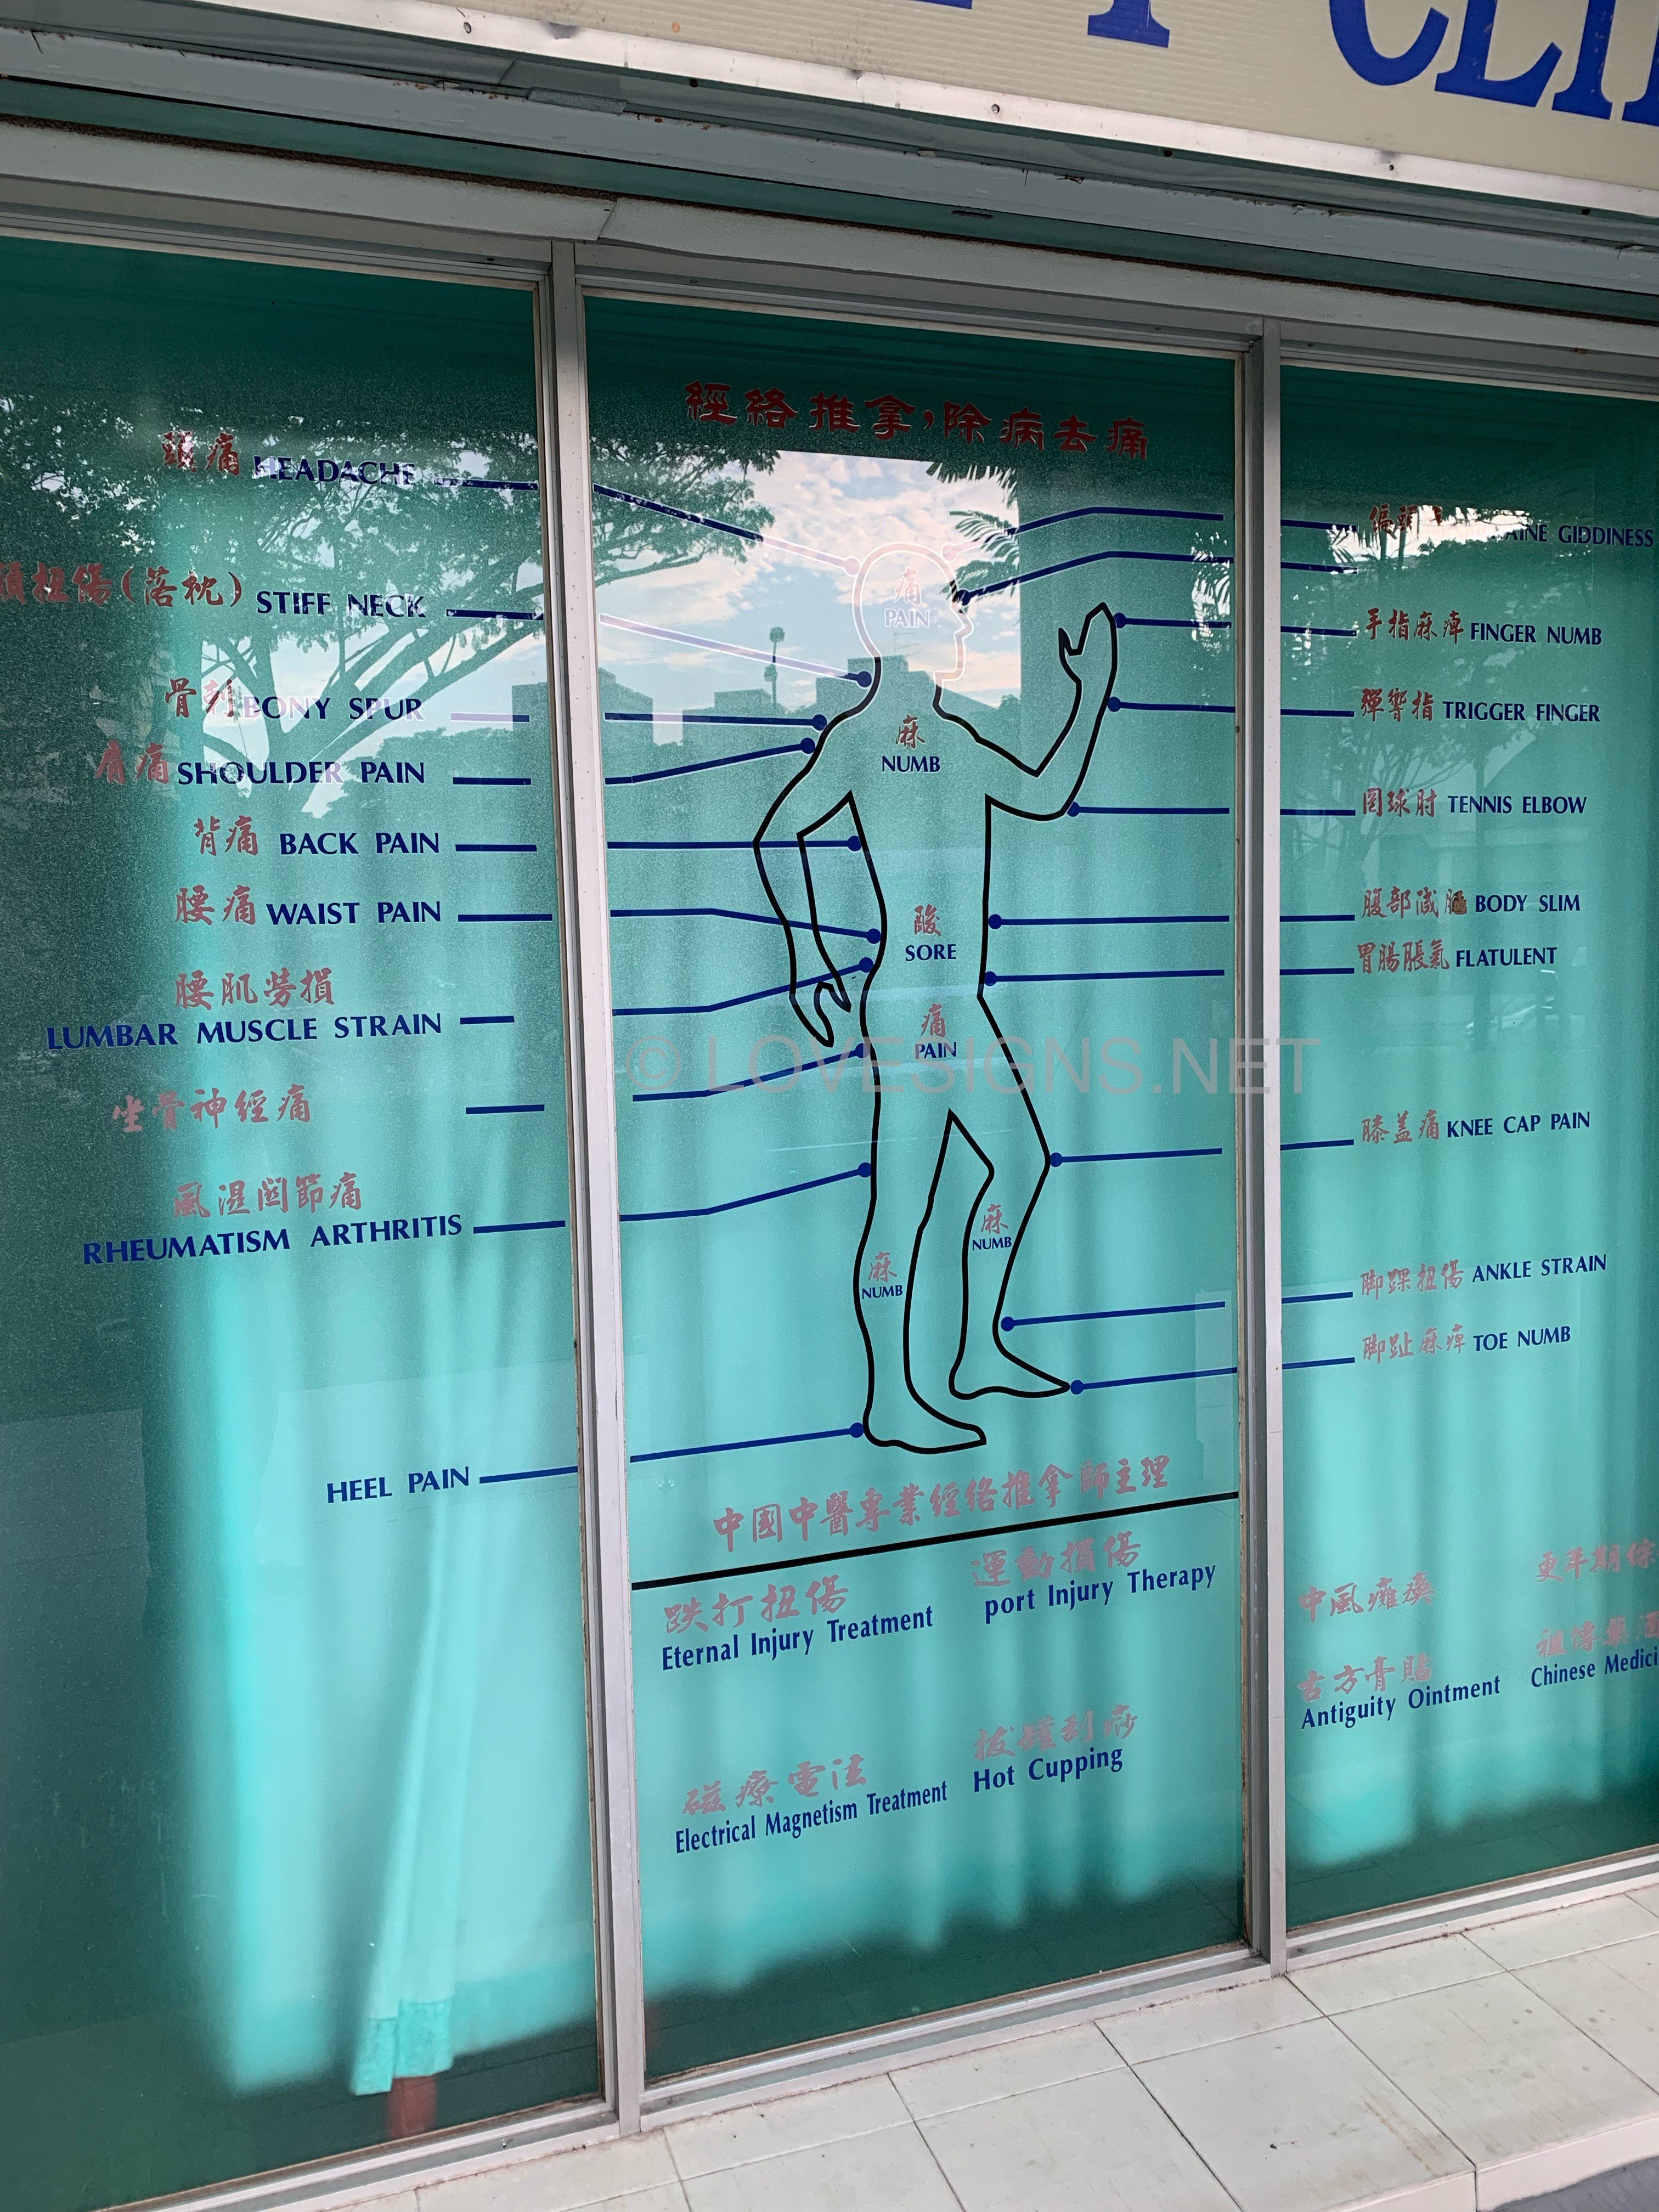 CLI
經絡推拿,除病去痛
頭痛 HEADACHE
頸扭傷(落枕) STIFF NECK
骨刺 BONY SPUR
肩痛 SHOULDER PAIN
背痛 BACK PAIN
腰痛 WAIST PAIN
腰肌勞損
LUMBAR MUSCLE STRAIN
坐骨神經痛
風濕関節痛
RHEUMATISM ARTHRITIS
HEEL PAIN
痛
PAIN
麻
NUMB
酸
SORE
痛
PAIN
麻
NUMB
麻
NUMB
偏頭 GIDDINESS
手指麻痺 FINGER NUMB
彈響指 TRIGGER FINGER
网球肘 TENNIS ELBOW
腹部減肥 BODY SLIM
胃腸脹氣 FLATULENT
膝盖痛 KNEE CAP PAIN
脚踝扭傷 ANKLE STRAIN
脚趾麻痺 TOE NUMB
© LOVESIGNS.NET
中國中醫專業經絡推拿師主理
跌打扭傷
Eternal Injury Treatment
運動損傷
port Injury Therapy
磁療電法
Electrical Magnetism Treatment
拔罐刮痧
Hot Cupping
中風癱瘓
更年期綜
古方膏貼
Antiguity Ointment
祖傳藥酒
Chinese Medici